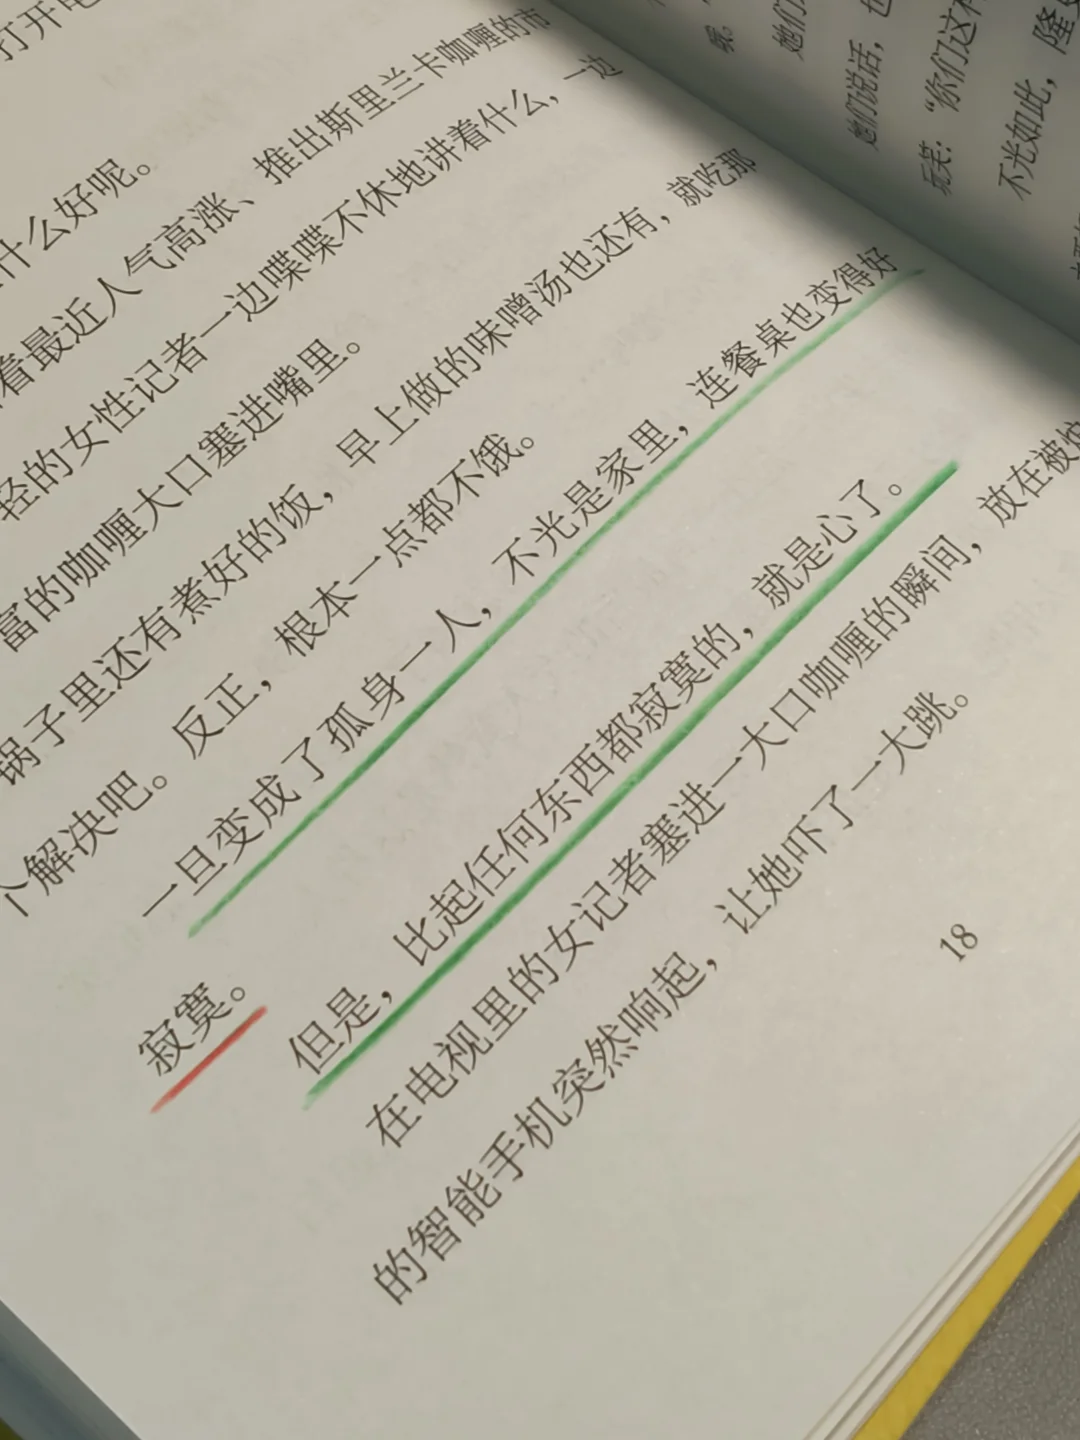 打开电
什么好呢。
着最近人气高涨、推出斯里兰卡咖喱的市
轻的女性记者一边喋喋不休地讲着什么，一边
富的咖喱大口塞进嘴里。
锅子里还有煮好的饭，早上做的味噌汤也还有，就吃那
个解决吧。反正，根本一点都不饿。
一旦变成了孤身一人，不光是家里，连餐桌也变得好
寂寞。
但是，比起任何东西都寂寞的，就是心了。
在电视里的女记者塞进一大口咖喱的瞬间，放在被炉
的智能手机突然响起，让她吓了一大跳。
18
她们
她们说话，也
玩笑：“你们这样
不光如此，隆